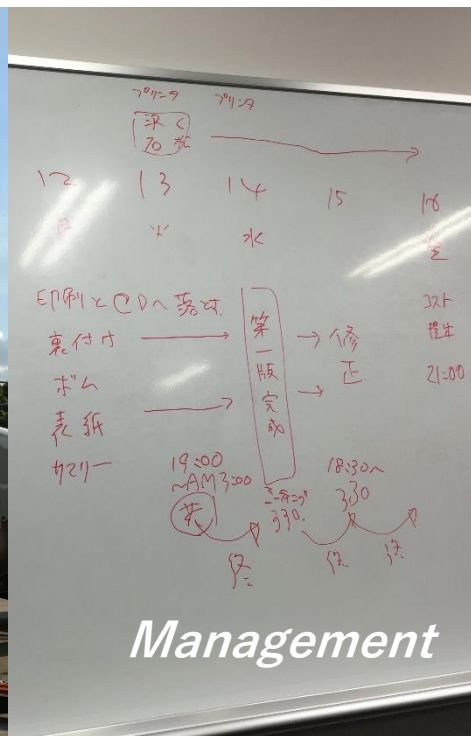 プリンタ プリンタ
12 13 14 15 16
月 火 水 金
印刷とCDへ落とす
裏付け
ボム
表紙
サマリー
第一版完成
修正
コスト
21:00
19:00
~AM3:00
ミーティング
330.
18:30~
330
Management